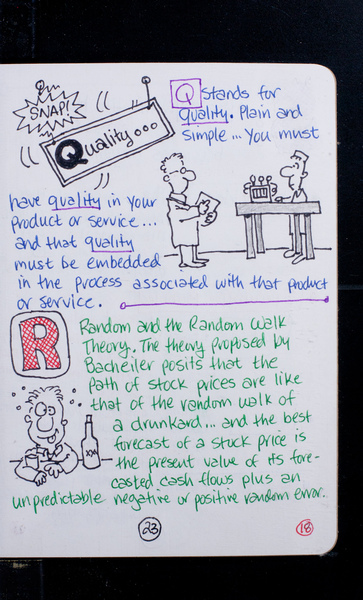 SNAP!
Quality...
Q stands for
quality. Plain and
simple... You must
have quality in your
product or service...
and that quality
must be embedded
in the process associated with that product
or service.
R
Random and the Random Walk
Theory. The theory proposed by
Bacheiler posits that the
path of stock prices are like
that of the random walk of
a drunkard... and the best
forecast of a stock price is
the present value of its fore-
casted cash flows plus an
unpredictable negative or positive random error.
XXX
23
18